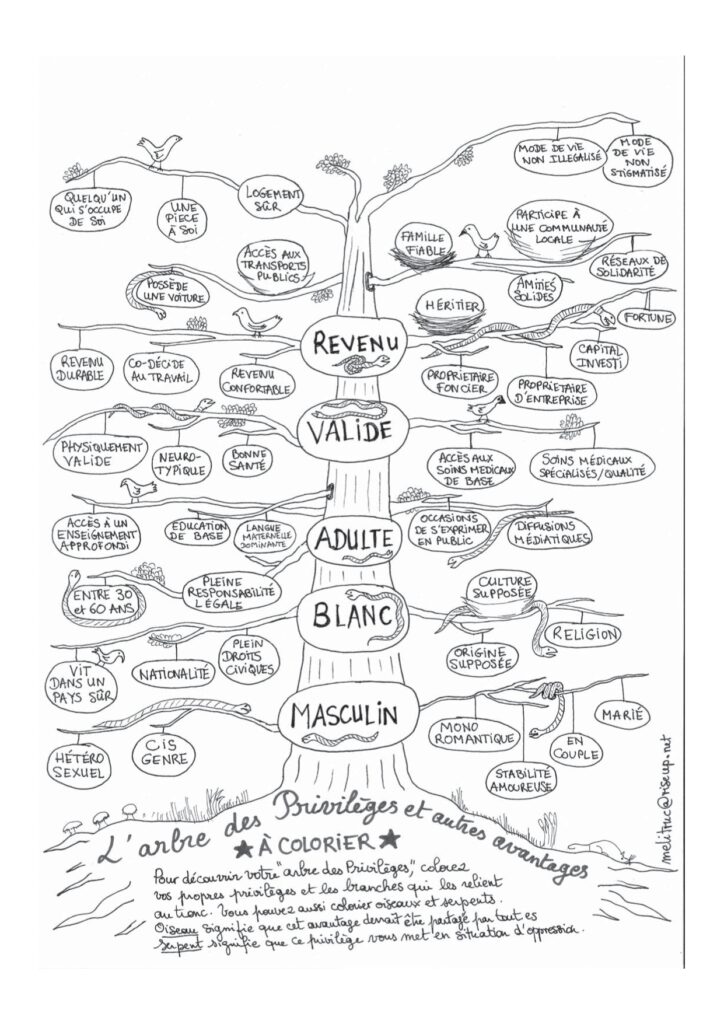 MODE DE VIE
NON ILLEGALISÉ
MODE
DE VIE
NON
STIGMATISÉ
QUELQU'UN
QUI S'OCCUPE
DE SOI
UNE
PIECE
À SOI
LOGEMENT
SÛR
FAMILLE
FIABLE
PARTICIPE À
UNE COMMUNAUTÉ
LOCALE
RÉSEAUX DE
SOLIDARITÉ
ACCÈS AUX
TRANSPORTS
PUBLICS
POSSÈDE
UNE VOITURE
AMITIÉS
SOLIDES
HÉRITIER
FORTUNE
REVENU
REVENU
DURABLE
CO-DÉCIDE
AU TRAVAIL
REVENU
CONFORTABLE
PROPRIETAIRE
FONCIER
CAPITAL
INVESTI
PROPRIÉTAIRE
D'ENTREPRISE
VALIDE
PHYSIQUEMENT
VALIDE
NEURO-
TYPIQUE
BONNE
SANTÉ
ACCÈS AUX
SOINS MEDICAUX
DE BASE
SOINS MÉDICAUX
SPÉCIALISÉS/QUALITÉ
ADULTE
ACCÈS À UN
ENSEIGNEMENT
APPROFONDI
EDUCATION
DE BASE
LANGUE
MATERNELLE
DOMINANTE
OCCASIONS
DE S'EXPRIMER
EN PUBLIC
DIFFUSIONS
MÉDIATIQUES
ENTRE 30
et 60 ANS
PLEINE
RESPONSABILITÉ
LÉGALE
BLANC
CULTURE
SUPPOSÉE
RELIGION
ORIGINE
SUPPOSÉE
VIT
DANS UN
PAYS SÛR
NATIONALITÉ
PLEIN
DROITS
CIVIQUES
MASCULIN
HÉTÉRO
SEXUEL
CIS
GENRE
MONO
ROMANTIQUE
STABILITÉ
AMOUREUSE
EN
COUPLE
MARIÉ
melitruc@riseup.net
L'arbre des Privilèges et autres avantages
★ À COLORIER ★
Pour découvrir votre "arbre des Privilèges", colorez
vos propres privilèges et les branches qui les relient
au tronc. Vous pouvez aussi colorier oiseaux et serpents.
Oiseau signifie que cet avantage devrait être partagé par tout es
Serpent signifie que ce privilège vous met en situation d'oppression.